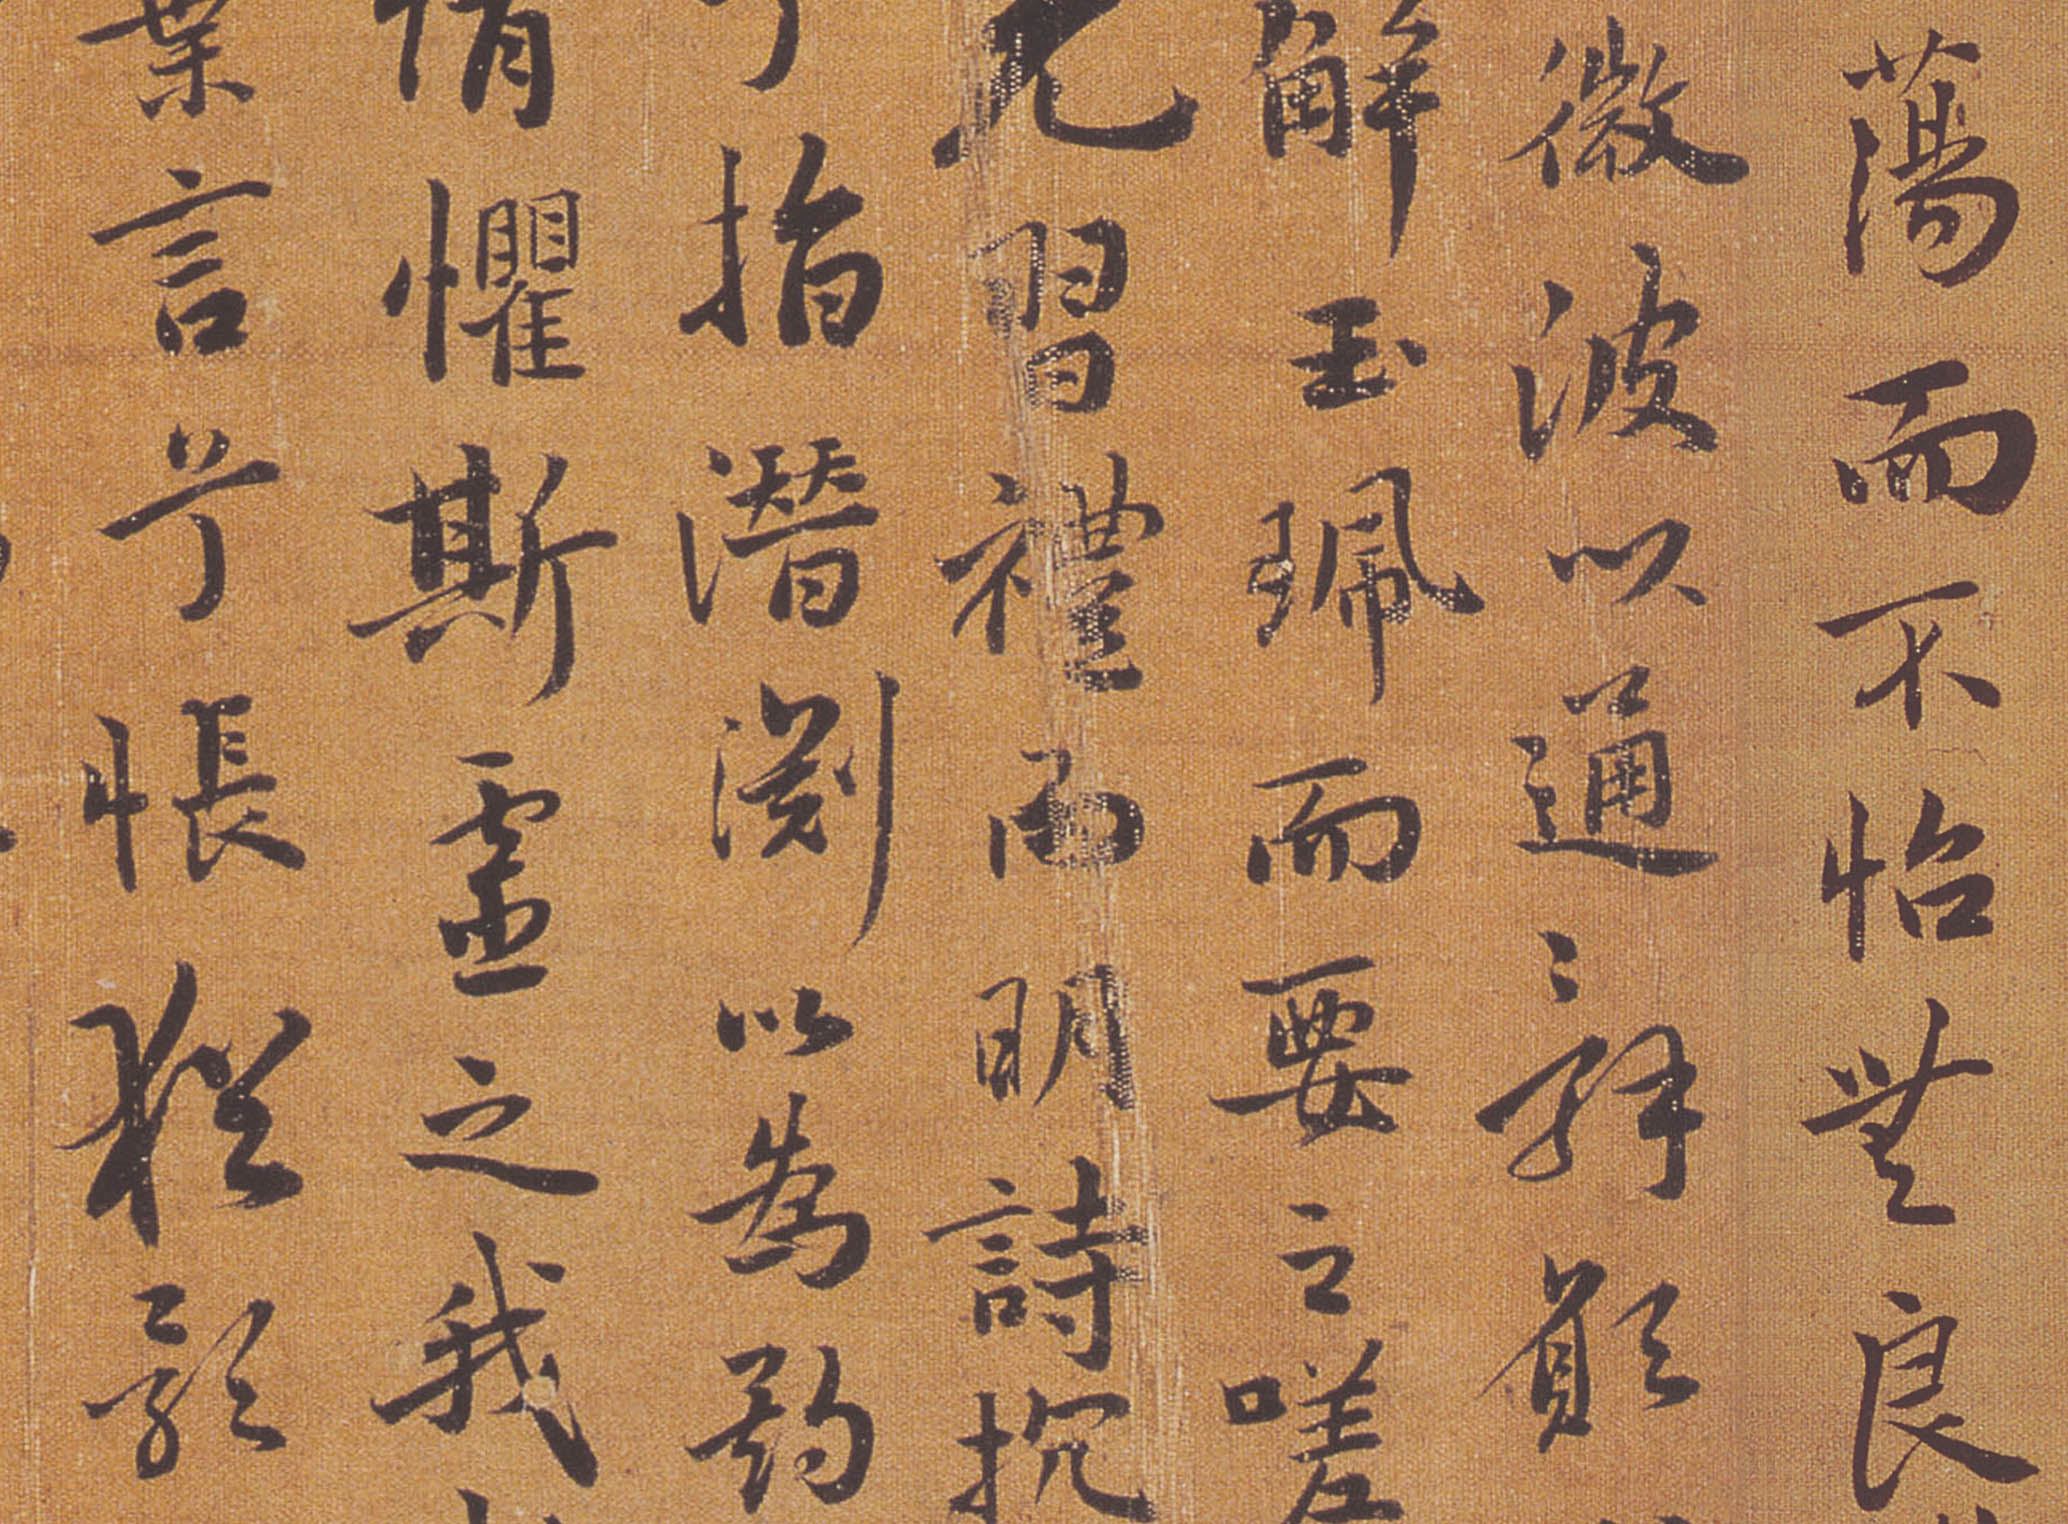 蕩而不怡無良
微波以通辭願
解玉珮而要之嗟
羌習禮而明詩抗
兮指潛淵以為期
懼斯靈之我
棄言兮悵猶豫